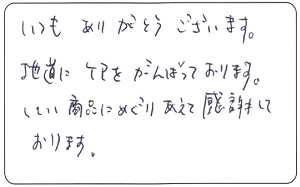 いつも ありがとう ございます。
地道に ケアを がんばって おります。
いい 商品に めぐり あえて 感謝して
おります。